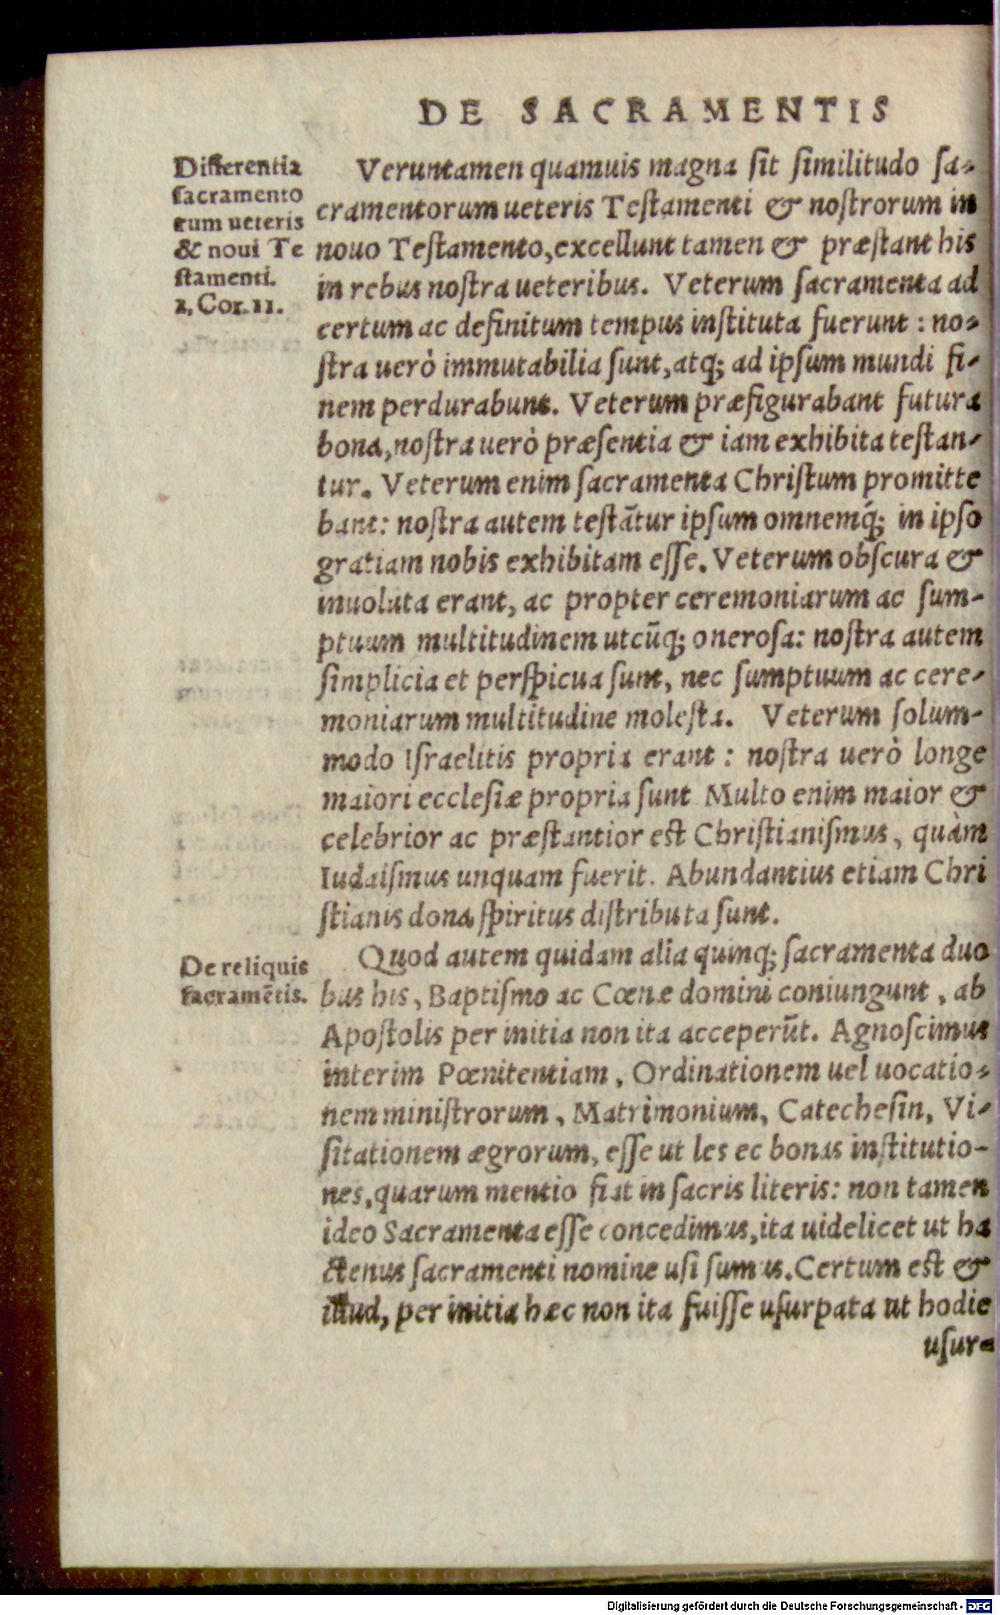 DE SACRAMENTIS
Differentia
sacramento
rum ueteris
& noui Te
stamenti.
2. Cor. 11.
Veruntamen quamuis magna sit similitudo sa-
cramentorum ueteris Testamenti & nostrorum in
nouo Testamento, excellunt tamen & præstant his
in rebus nostra ueteribus. Veterum sacramenta ad
certum ac definitum tempus instituta fuerunt : no-
stra uerò immutabilia sunt, atq; ad ipsum mundi fi-
nem perdurabunt. Veterum præfigurabant futura
bona, nostra uerò præsentia & iam exhibita testan-
tur. Veterum enim sacramenta Christum promitte
bant: nostra autem testãtur ipsum omnemq́; in ipso
gratiam nobis exhibitam esse. Veterum obscura &
inuoluta erant, ac propter ceremoniarum ac sum-
ptuum multitudinem utcũq; onerosa: nostra autem
simplicia et perspicua sunt, nec sumptuum ac cere-
moniarum multitudine molesta. Veterum solum-
modo Israelitis propria erant : nostra uerò longe
maiori ecclesiæ propria sunt Multo enim maior &
celebrior ac præstantior est Christianismus, quàm
Iudaismus unquam fuerit. Abundantius etiam Chri
stianis dona spiritus distributa sunt.
De reliquis
sacramẽtis.
Quod autem quidam alia quinq; sacramenta duo
bus his, Baptismo ac Cœnæ domini coniungunt, ab
Apostolis per initia non ita acceperũt. Agnoscimus
interim Pœnitentiam, Ordinationem uel uocatio-
nem ministrorum, Matrimonium, Catechesin, Vi-
sitationem ægrorum, esse ut les ec bonas institutio-
nes, quarum mentio fiat in sacris literis: non tamen
ideo Sacramenta esse concedimus, ita uidelicet ut ha
ctenus sacramenti nomine usi sumus. Certum est &
illud, per initia hæc non ita fuisse usurpata ut hodie
usur-
Digitalisierung gefördert durch die Deutsche Forschungsgemeinschaft - DFG